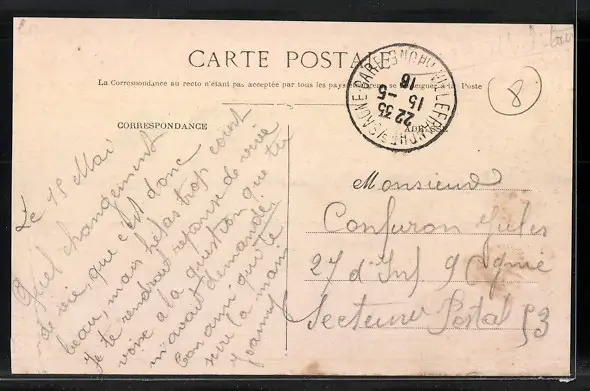 CARTE POSTALE
La Correspondance au recto n'étant pas acceptée par tous les pays se à la Poste
8
VILLEFRANCHE S/SAONE GARE
RHONE
22 35
15 - 5
16
CORRESPONDANCE
ADRESSE
Le 15 Mai
Quel changement
de vie, que c'est donc
beau, mais hélas trop court
Je te rendrai réponse de vive
voix a la question que tu
m'avait demandé.
ton ami qui te
serre la main
Joanny
Monsieur
Confuron Jules
27 d'Inf 9 Cgnie
Secteur Postal 53